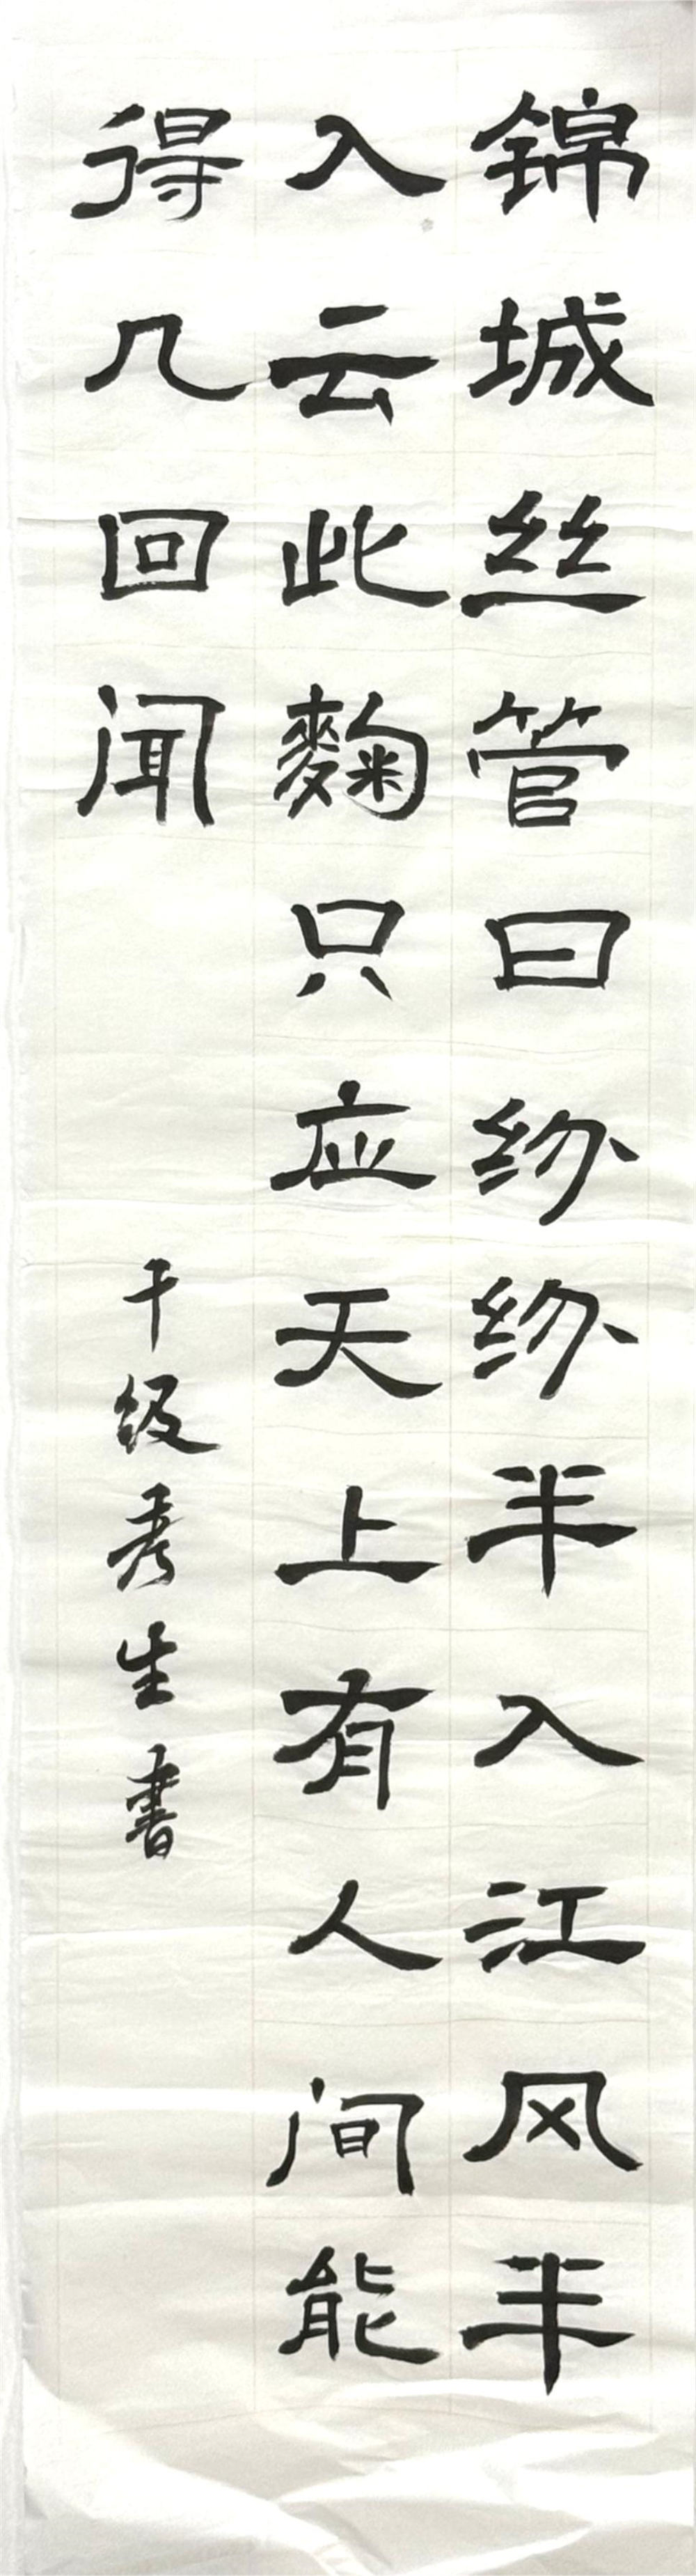 锦城丝管日纷纷半入江风半
入云此麴只应天上有人间能
得几回闻
十级考生书